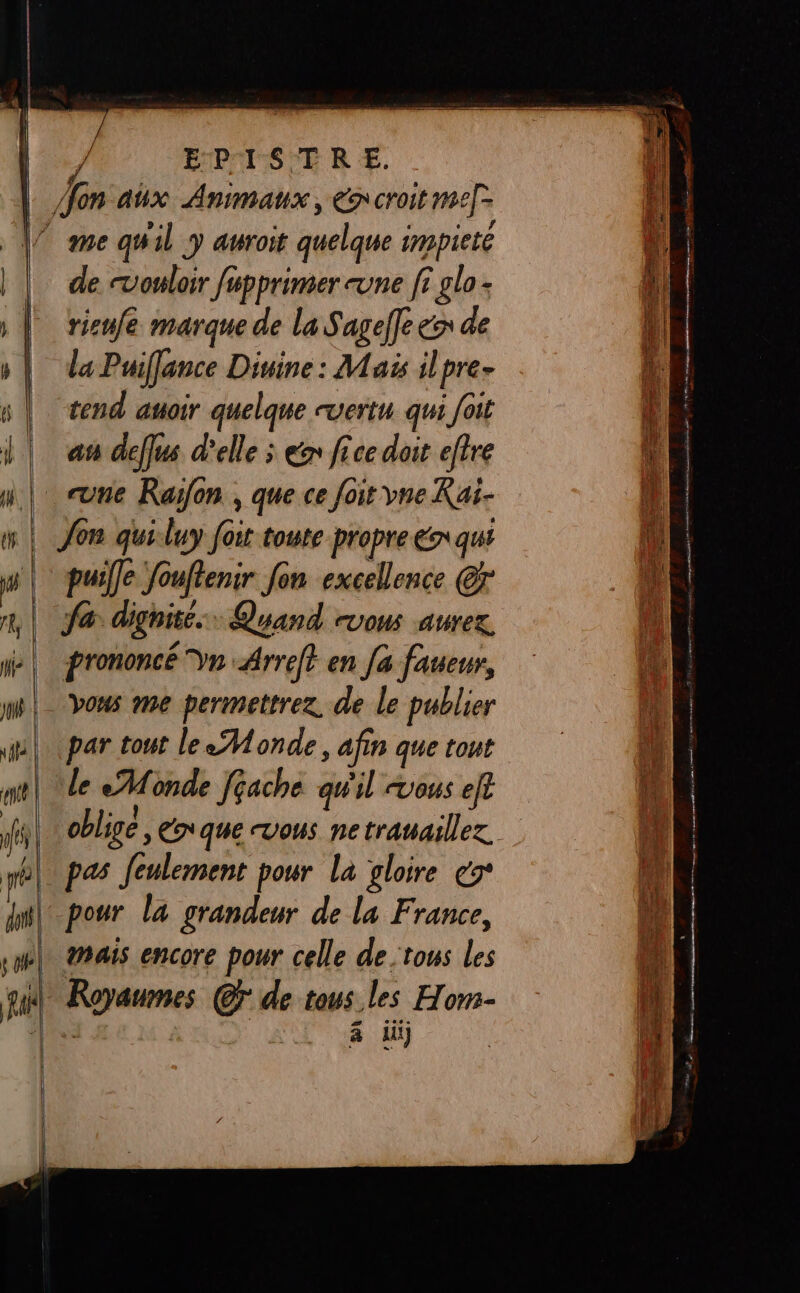 EPISTRE.
ſon aux Animaux, & croit meſ-
me qu'il y auroit quelque impieté
de vouloir ſupprimer vne ſi glo-
rieuſe marque de la Sageſſe & de
la Puiſſance Diuine : Mais il pre-
tend auoir quelque vertu qui ſoit
au deſſus d'elle ; & ſi ce doit eſtre
vne Raiſon , que ce ſoit vne Rai-
ſon qui luy ſoit toute propre & qui
puiſſe ſouſtenir ſon excellence &
ſa dignité. Quand vous aurez
prononcé vn Arreſt en ſa faueur,
vous me permettrez de le publier
par tout le Monde , afin que tout
le Monde ſçache qu'il vous eſt
obligé , & que vous ne trauaillez
pas ſeulement pour la gloire &
pour la grandeur de la France,
mais encore pour celle de tous les
Royaumes & de tous les Hom-
ã iiij